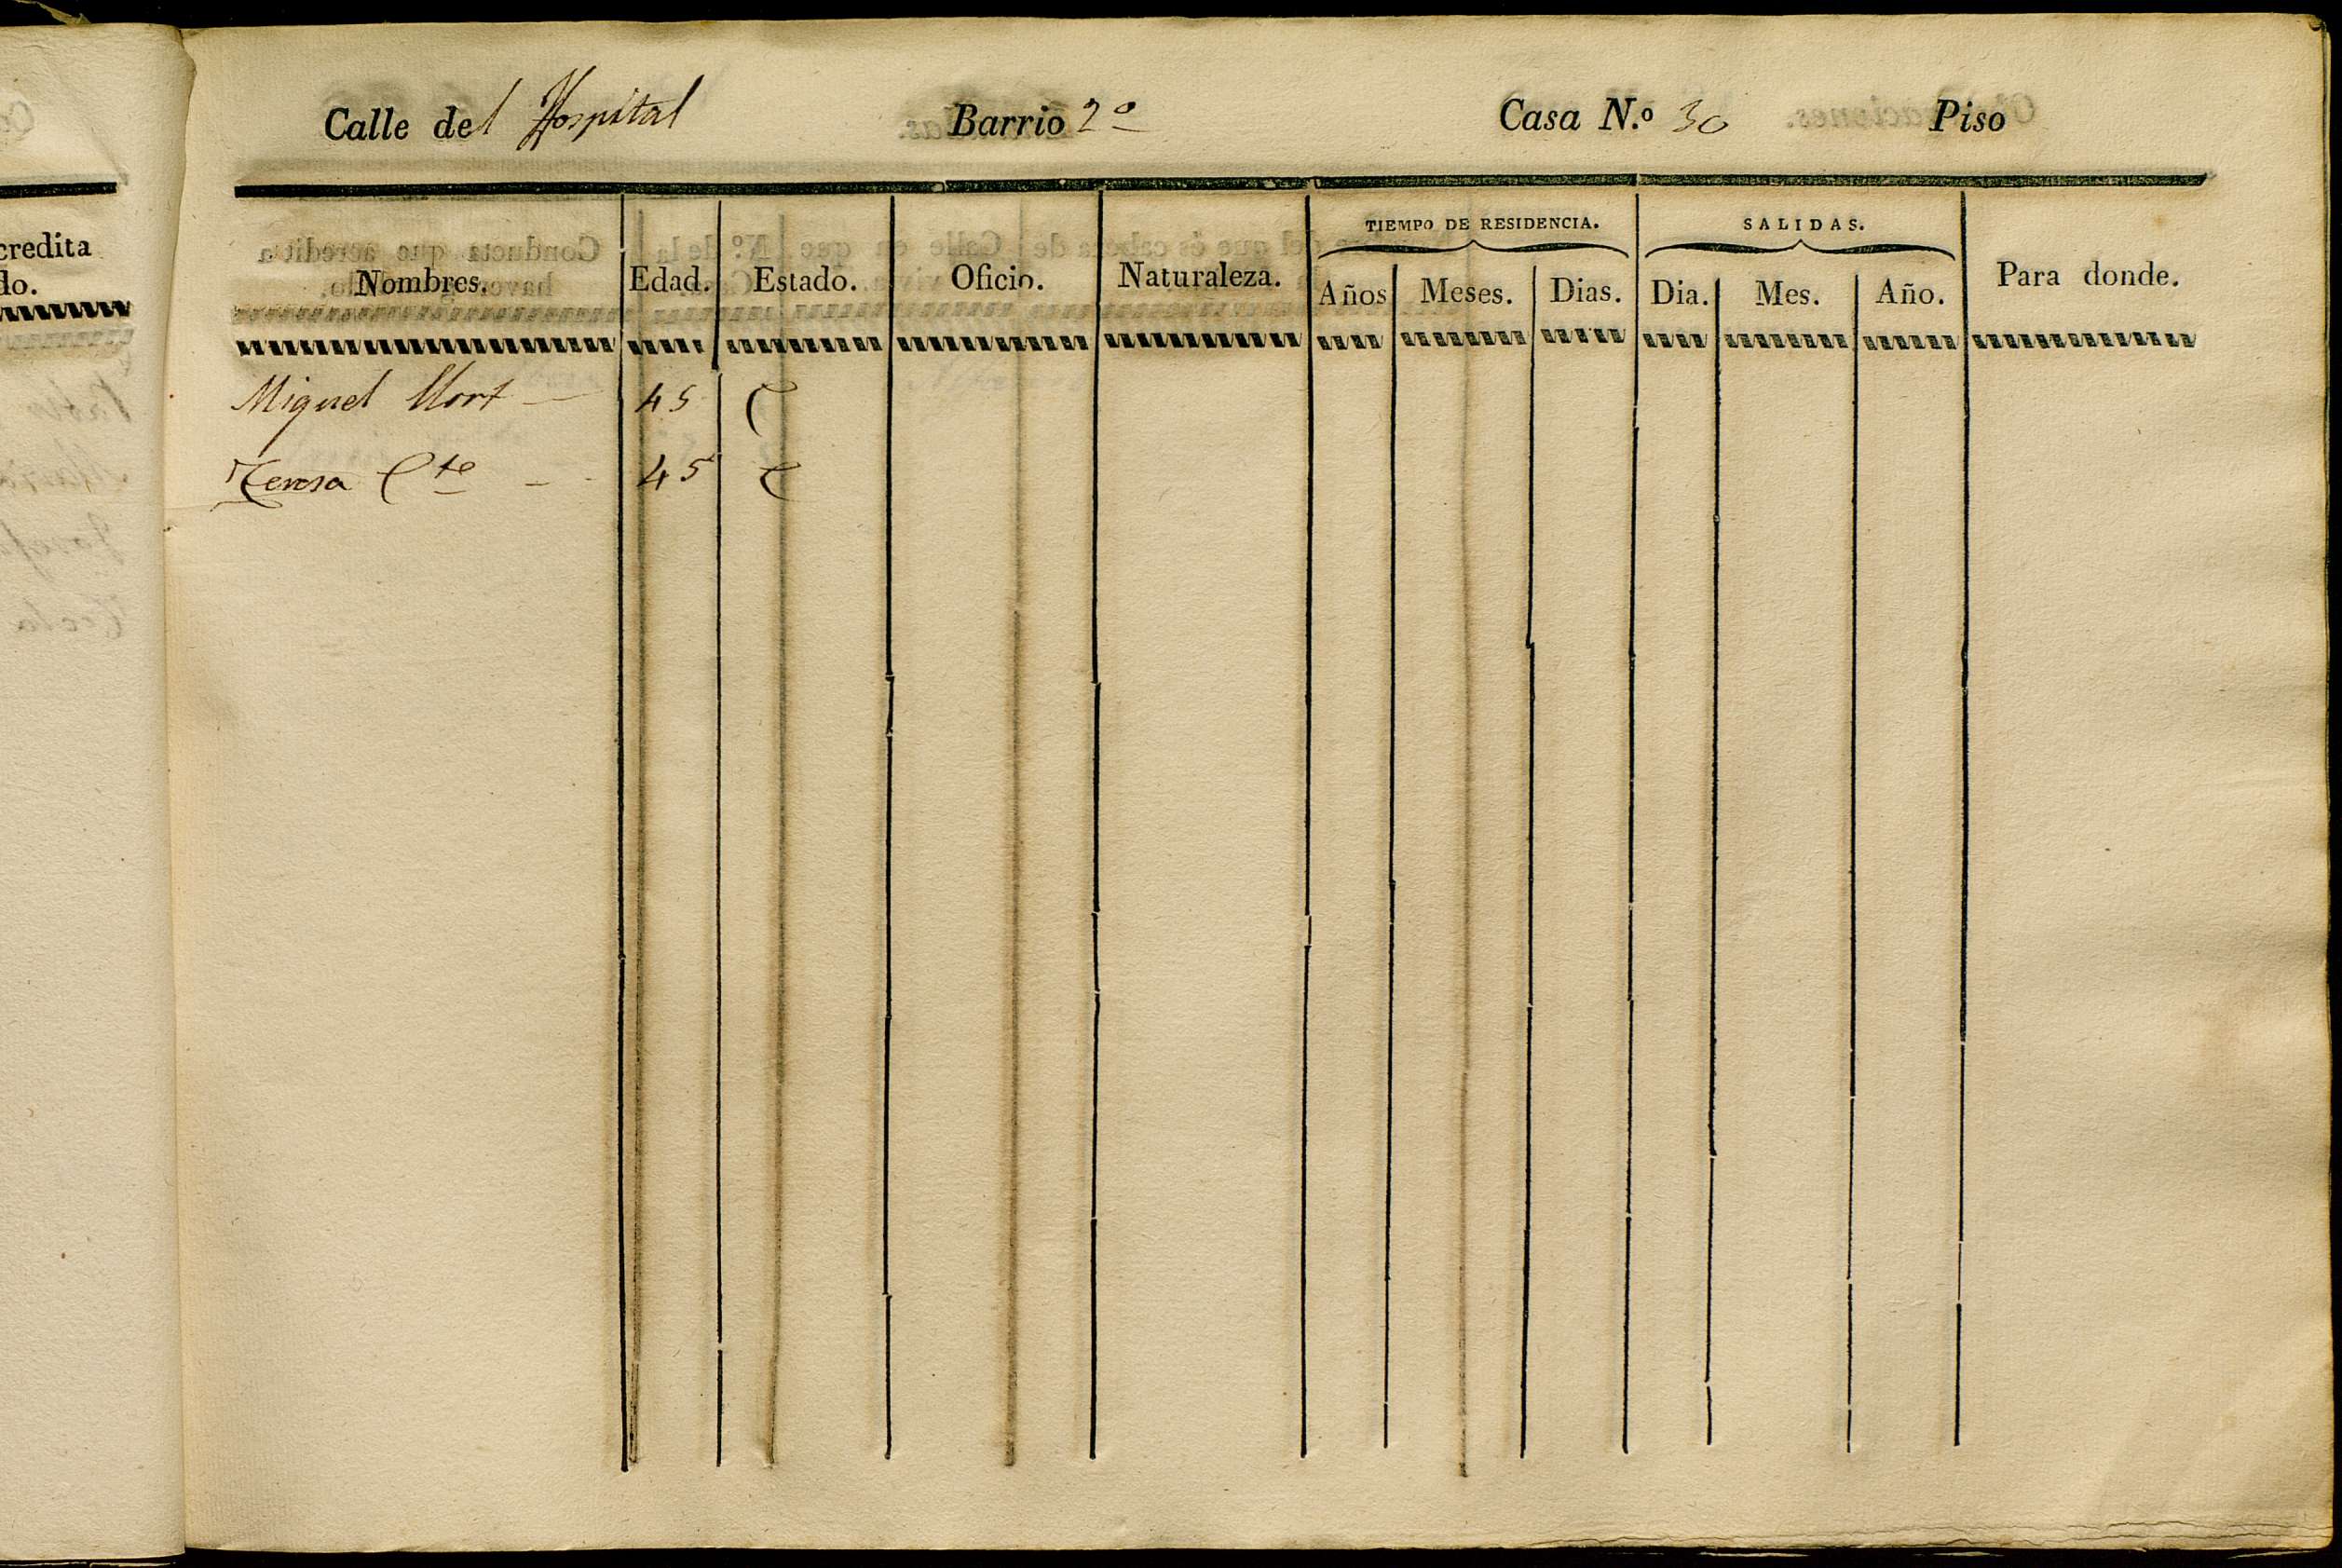 Calle del Hospital Barrio 2º Casa N.º 30 Piso
TIEMPO DE RESIDENCIA. SALIDAS.
Nombres. Edad. Estado. Oficio. Naturaleza. Años Meses. Dias. Dia. Mes. Año. Para donde.
Miguel Mort 45 C
Teresa Cte 45 C
credita
do.